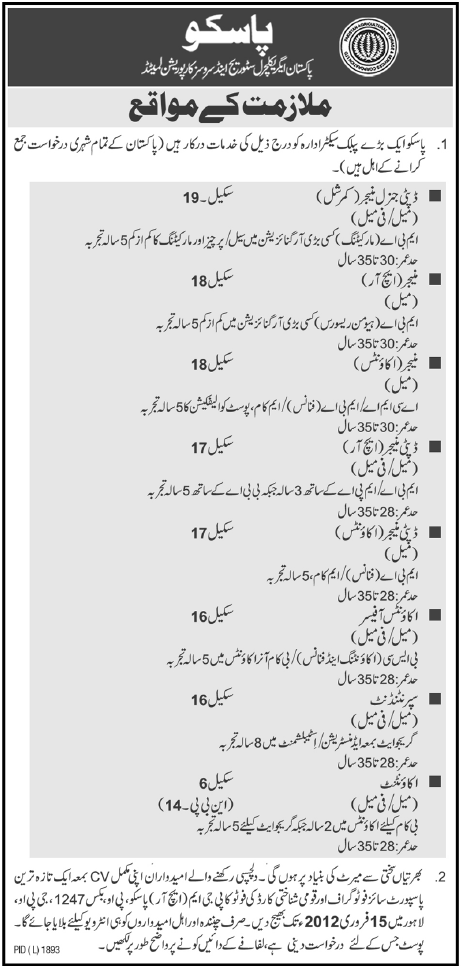 پاسکو
پاکستان ایگریکلچرل سٹوریج اینڈ سروسز کارپوریشن لمیٹڈ
ملازمت کے مواقع
1. پاسکو ایک بڑے پبلک سیکٹر ادارہ کو درج ذیل کی خدمات درکار ہیں (پاکستان کے تمام شہری درخواست جمع
کرانے کے اہل ہیں)۔
■ ڈپٹی جنرل منیجر (کمرشل) سکیل۔19
(میل/فی میل)
ایم بی اے (مارکیٹنگ) کسی بڑی آرگنائزیشن میں سیل/پرچیز اور مارکیٹنگ کا کم از کم 5 سالہ تجربہ
حد عمر: 30 تا 35 سال
■ منیجر (ایچ آر) سکیل 18
(میل)
ایم بی اے (ہیومن ریسورس) کسی بڑی آرگنائزیشن میں کم از کم 5 سالہ تجربہ
حد عمر: 30 تا 35 سال
■ منیجر (اکاؤنٹس) سکیل 18
(میل)
اے سی ایم اے/ایم بی اے (فنانس)/ایم کام، پوسٹ کوالیفکیشن کا 5 سالہ تجربہ
حد عمر: 30 تا 35 سال
■ ڈپٹی منیجر (ایچ آر) سکیل 17
(میل/فی میل)
ایم بی اے/ایم پی اے کے ساتھ 3 سالہ جبکہ بی بی اے کے ساتھ 5 سالہ تجربہ
حد عمر: 28 تا 35 سال
■ ڈپٹی منیجر (اکاؤنٹس) سکیل 17
(میل)
ایم بی اے (فنانس)/ایم کام، 5 سالہ تجربہ
حد عمر: 28 تا 35 سال
■ اکاؤنٹس آفیسر سکیل 16
(میل/فی میل)
بی ایس سی (اکاؤنٹنگ اینڈ فنانس)/بی کام آنرز اکاؤنٹس میں 5 سالہ تجربہ
حد عمر: 28 تا 35 سال
■ سپرنٹنڈنٹ سکیل 16
(میل/فی میل)
گریجوایٹ بمعہ ایڈمنسٹریشن/اسٹیبلشمنٹ میں 8 سالہ تجربہ
حد عمر: 28 تا 35 سال
■ اکاؤنٹنٹ سکیل 6
(میل/فی میل) (این بی پی۔14)
بی کام کیلئے اکاؤنٹس میں 2 سالہ جبکہ گریجوایٹ کیلئے 5 سالہ تجربہ
حد عمر: 28 تا 35 سال
2. بھرتیاں سختی سے میرٹ کی بنیاد پر ہوں گی۔ دلچسپی رکھنے والے امیدواران اپنی مکمل CV بمعہ ایک تازہ ترین
پاسپورٹ سائز فوٹوگراف اور قومی شناختی کارڈ کی فوٹو کاپی جی ایم (ایچ آر) پاسکو، پی او، بکس 1247، جی پی او،
لاہور میں 15 فروری 2012ء تک بھیج دیں۔ صرف چنیدہ اور اہل امیدواروں کو ہی انٹرویو کیلئے بلایا جائے گا۔
پوسٹ جس کے لئے درخواست دینی ہے، لفافے کے دائیں کونے پر واضح طور پر لکھیں۔
PID (L) 1893